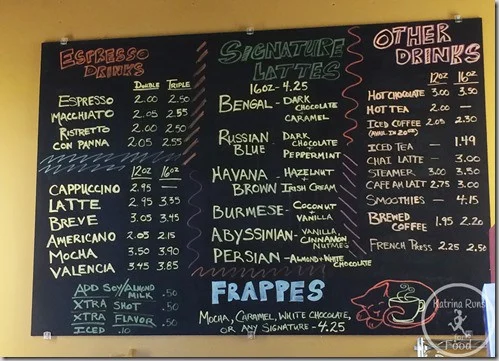 ESPRESSO
DRINKS
DOUBLE TRIPLE
ESPRESSO 2.00 2.50
MACCHIATO 2.05 2.55
RISTRETTO 2.00 2.50
CON PANNA 2.05 2.55
12oz 16oz
CAPPUCCINO 2.95 —
LATTE 2.95 3.35
BREVE 3.05 3.45
AMERICANO 2.05 2.15
MOCHA 3.50 3.90
VALENCIA 3.45 3.85
ADD SOY/ALMOND
MILK .50
XTRA SHOT .50
XTRA FLAVOR .50
ICED .10
SIGNATURE
LATTES
16oz - 4.25
BENGAL - DARK
CHOCOLATE
CARAMEL
RUSSIAN DARK
BLUE - CHOCOLATE
PEPPERMINT
HAVANA - HAZELNUT
BROWN + IRISH CREAM
BURMESE - COCONUT +
VANILLA
ABYSSINIAN - VANILLA
CINNAMON
NUTMEG
PERSIAN - ALMOND + WHITE
CHOCOLATE
FRAPPES
MOCHA, CARAMEL, WHITE CHOCOLATE,
OR ANY SIGNATURE - 4.25
OTHER
DRINKS
12oz 16oz
HOT CHOCOLATE 3.00 3.50
HOT TEA 2.00 —
ICED COFFEE 2.05 2.30
(AVAIL. IN 20oz)
ICED TEA — 1.49
CHAI LATTE — 3.00
STEAMER 3.00 3.50
CAFE AM LAIT 2.75 3.00
SMOOTHIES — 4.15
BREWED
COFFEE 1.95 2.20
FRENCH PRESS 2.25 2.50
Katrina Runs
for
Food